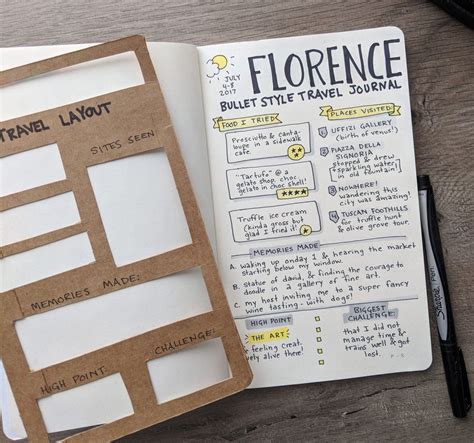 TRAVEL LAYOUT
SITES SEEN
MEMORIES MADE:
HIGH POINT:
CHALLENGE:
JULY
4-8
2017
FLORENCE
BULLET STYLE TRAVEL JOURNAL
FOOD I TRIED
Prosciutto & canta-
loupe in a sidewalk
cafe.
"Tartufo" @ a
gelato shop. choc.
gelato in choc shell!
Truffle ice cream
(kinda gross but
glad I tried it!)
PLACES VISITED
1 UFFIZI GALLERY
(birth of venus!)
2 PIAZZA DELLA
SIGNORIA
stopped & drew
sparkling water
in old fountain!
3 NOWHERE!
wandering this
city was amazing!
4 TUSCAN FOOTHILLS
for truffle hunt
& olive grove tour.
MEMORIES MADE
A. waking up on day 1 & hearing the market
starting below my window.
B. Statue of david, & finding the courage to
doodle in a gallery of fine art.
C. my host inviting me to a super fancy
wine tasting.. with dogs!
HIGH POINT
THE ART
feeling creat-
ively alive there!
BIGGEST
CHALLENGE:
that I did not
manage time &
trains well & got
lost.
Sharpie